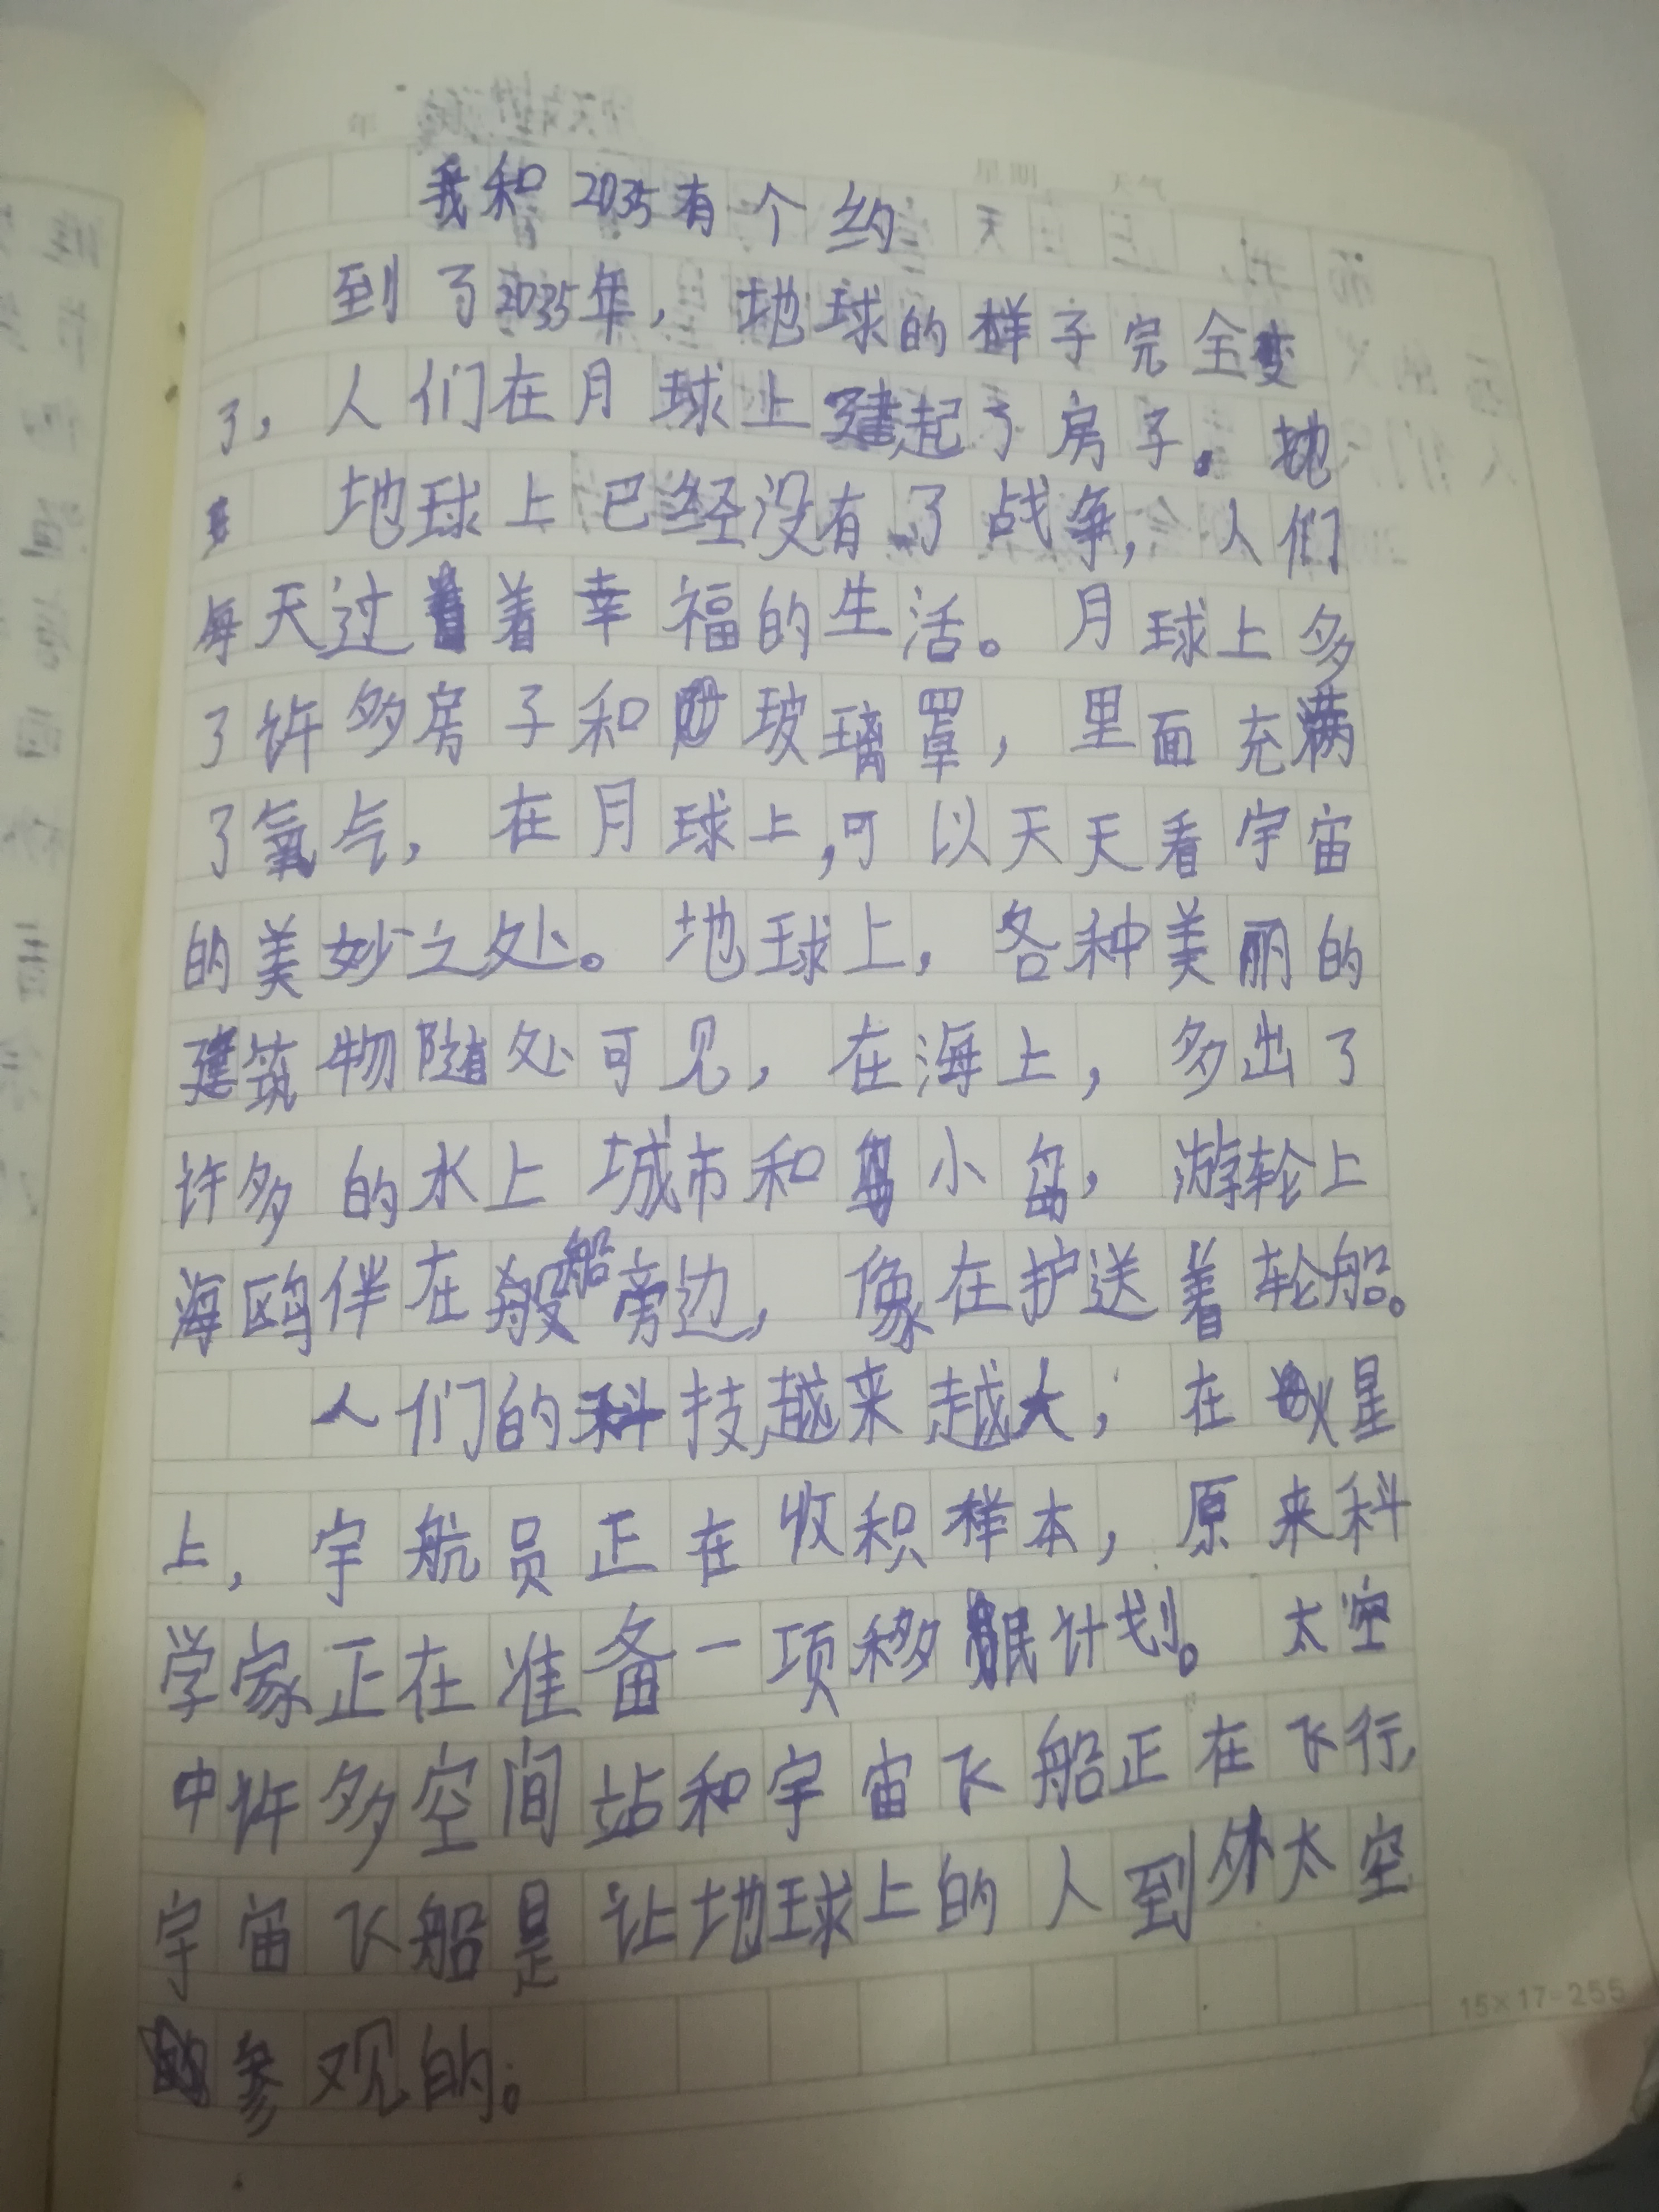 我和2035有个约
到了2035年，地球的样子完全变
了，人们在月球上建起了房子。
地球上已经没有了战争，人们
每天过着幸福的生活。月球上多
了许多房子和玻璃罩，里面充满
了氧气，在月球上，可以天天看宇宙
的美妙之处。地球上，各种美丽的
建筑物随处可见，在海上，多出了
许多的水上城市和小岛，游轮上
海鸥伴在船旁边，像在护送着轮船。
人们的科技越来越大，在火星
上，宇航员正在收积样本，原来科
学家正在准备一项移民计划。太空
中许多空间站和宇宙飞船正在飞行，
宇宙飞船是让地球上的人到外太空
参观的。
15×17=255